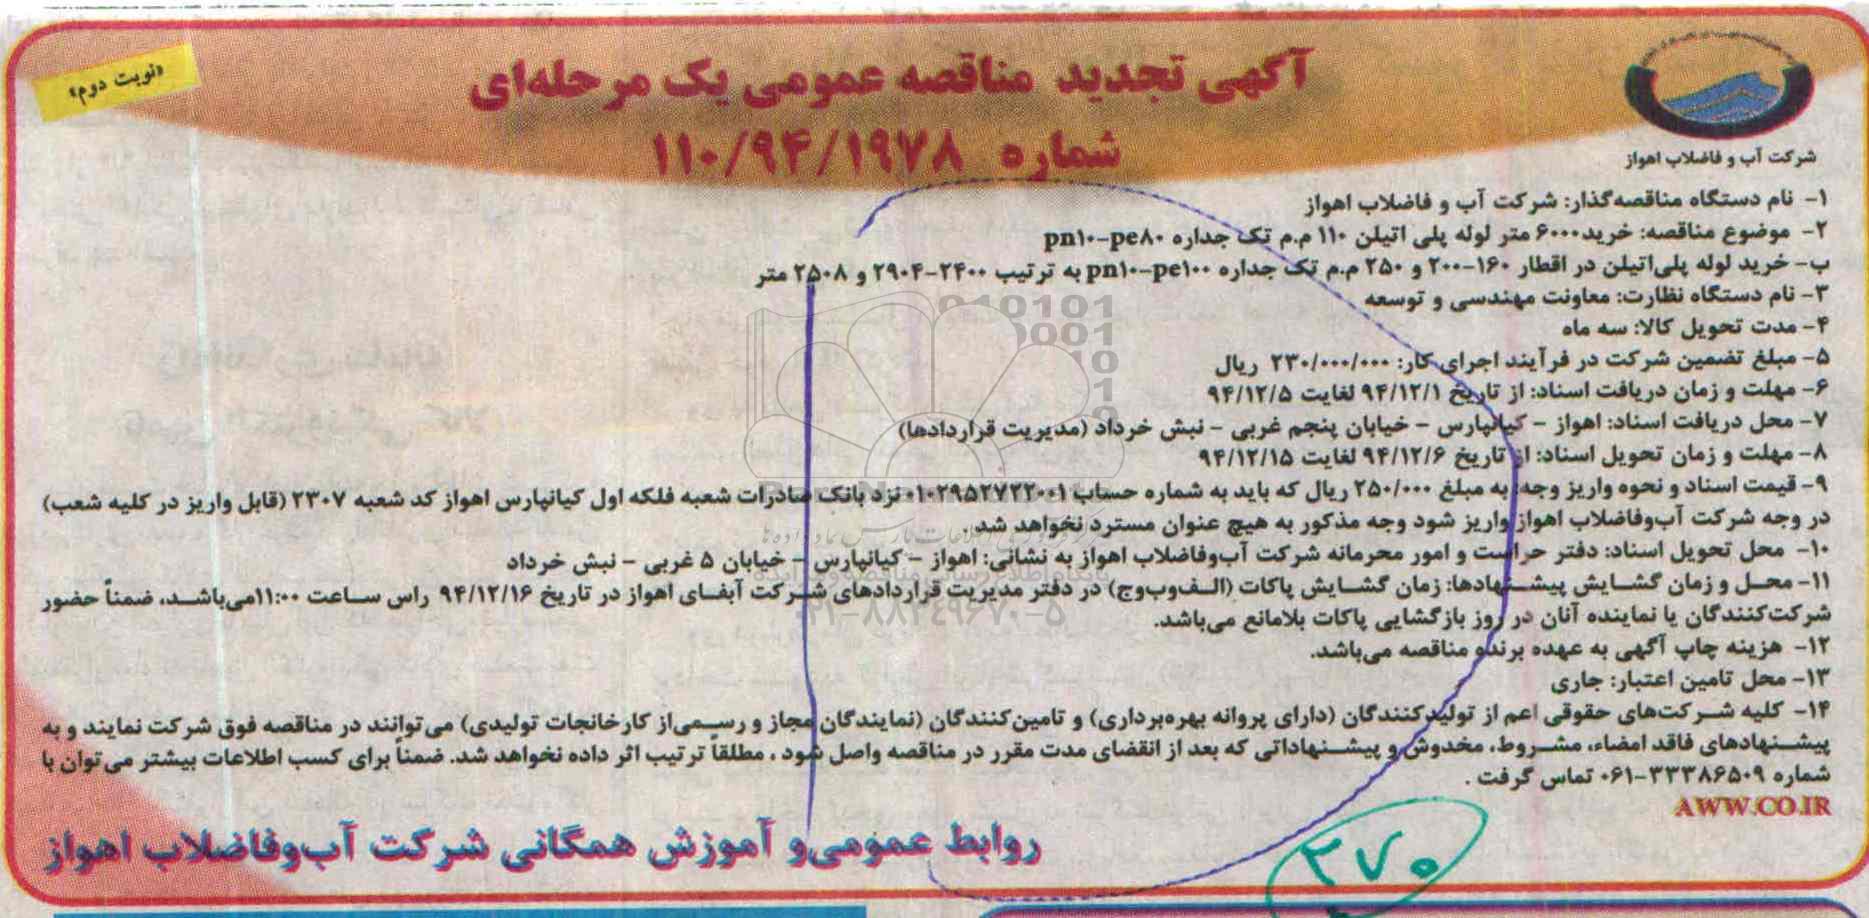 «نوبت دوم»
آگهی تجدید مناقصه عمومی یک مرحله‌ای
شماره ۱۱۰/۹۴/۱۹۷۸
شرکت آب و فاضلاب اهواز
۱- نام دستگاه مناقصه‌گذار: شرکت آب و فاضلاب اهواز
۲- موضوع مناقصه: خرید۶۰۰۰ متر لوله پلی اتیلن ۱۱۰ م.م تک جداره pn۱۰-pe۸۰
ب- خرید لوله پلی‌اتیلن در اقطار ۱۶۰-۲۰۰ و ۲۵۰ م.م تک جداره pn۱۰-pe۱۰۰ به ترتیب ۲۴۰۰-۲۹۰۴ و ۲۵۰۸ متر
۳- نام دستگاه نظارت: معاونت مهندسی و توسعه
۴- مدت تحویل کالا: سه ماه
۵- مبلغ تضمین شرکت در فرآیند اجرای کار: ۲۳۰/۰۰۰/۰۰۰ ریال
۶- مهلت و زمان دریافت اسناد: از تاریخ ۹۴/۱۲/۱ لغایت ۹۴/۱۲/۵
۷- محل دریافت اسناد: اهواز - کیانپارس - خیابان پنجم غربی - نبش خرداد (مدیریت قراردادها)
۸- مهلت و زمان تحویل اسناد: از تاریخ ۹۴/۱۲/۶ لغایت ۹۴/۱۲/۱۵
۹- قیمت اسناد و نحوه واریز وجه: به مبلغ ۲۵۰/۰۰۰ ریال که باید به شماره حساب ۰۱۰۲۹۵۲۷۲۲۰۰۱ نزد بانک صادرات شعبه فلکه اول کیانپارس اهواز کد شعبه ۲۳۰۷ (قابل واریز در کلیه شعب)
در وجه شرکت آب‌وفاضلاب اهواز واریز شود وجه مذکور به هیچ عنوان مسترد نخواهد شد.
۱۰- محل تحویل اسناد: دفتر حراست و امور محرمانه شرکت آب‌وفاضلاب اهواز به نشانی: اهواز - کیانپارس - خیابان ۵ غربی - نبش خرداد
۱۱- محل و زمان گشایش پیشنهادها: زمان گشایش پاکات (الف‌وب‌وج) در دفتر مدیریت قراردادهای شرکت آبفای اهواز در تاریخ ۹۴/۱۲/۱۶ راس ساعت ۱۱:۰۰می‌باشد، ضمناً حضور
شرکت‌کنندگان یا نماینده آنان در روز بازگشایی پاکات بلامانع می‌باشد.
۱۲- هزینه چاپ آگهی به عهده برنده مناقصه می‌باشد.
۱۳- محل تامین اعتبار: جاری
۱۴- کلیه شرکت‌های حقوقی اعم از تولیدکنندگان (دارای پروانه بهره‌برداری) و تامین‌کنندگان (نمایندگان مجاز و رسمی‌از کارخانجات تولیدی) می‌توانند در مناقصه فوق شرکت نمایند و به
پیشنهادهای فاقد امضاء، مشروط، مخدوش و پیشنهاداتی که بعد از انقضای مدت مقرر در مناقصه واصل شود ، مطلقاً ترتیب اثر داده نخواهد شد. ضمناً برای کسب اطلاعات بیشتر می‌توان با
شماره ۳۳۳۸۶۵۰۹-۰۶۱ تماس گرفت .
AWW.CO.IR
روابط عمومی‌و آموزش همگانی شرکت آب‌وفاضلاب اهواز
۳۷۰
۰۲۱-۸۸۳۴۹۶۷۰-۵